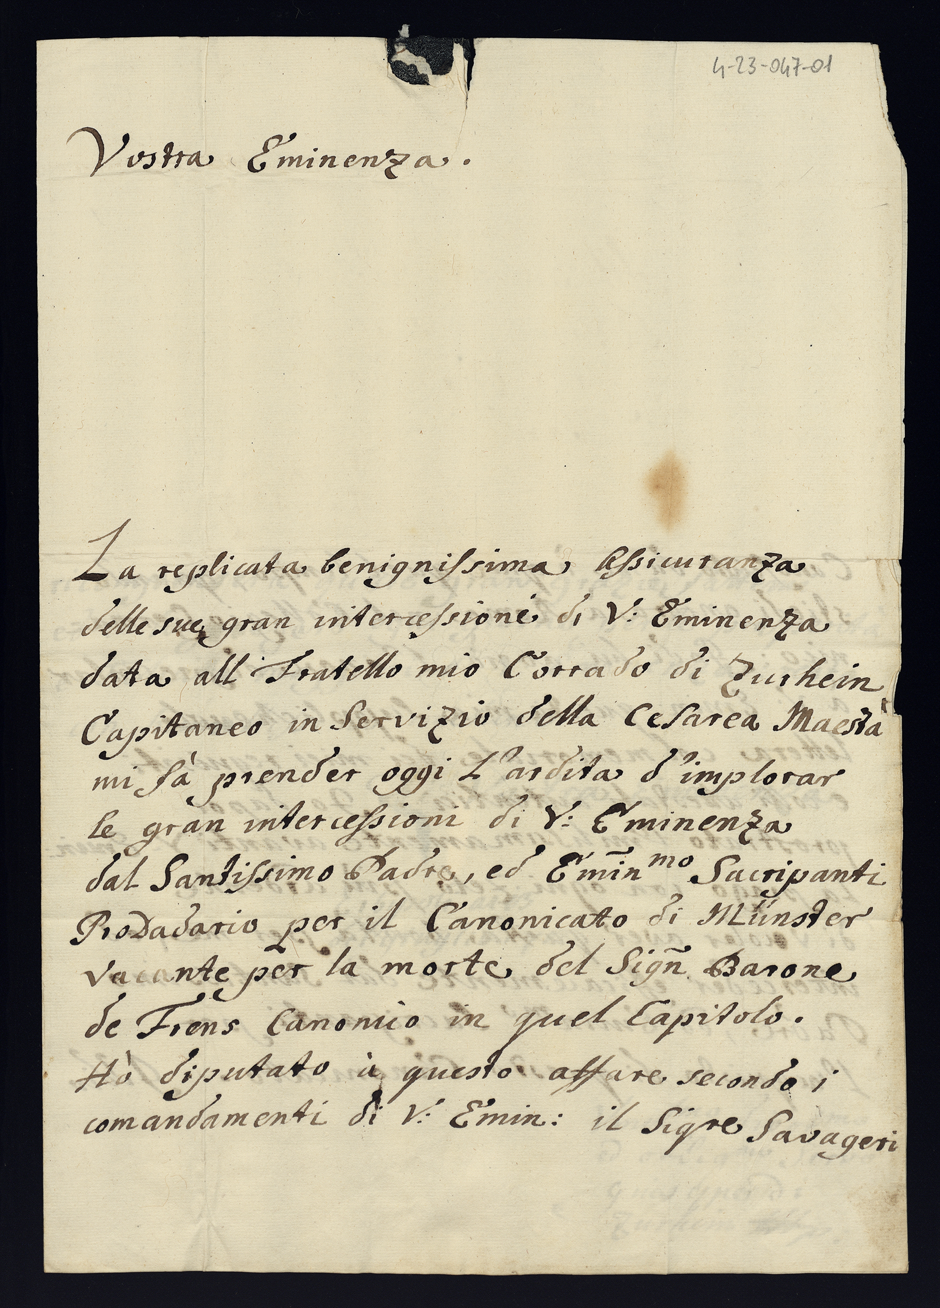 4-23-047-01
Vostra Eminenza.
La replicata benignissima Assicuranza
delle sue gran intercessioni di V: Eminenza
data all Fratello mio Corrado di Zurhein
Capitaneo in Servizio della Cesarea Maestà
mi fà prender oggi L'ardita d'implorar
le gran intercessioni di V: Eminenza
dal Santissimo Padre, ed Emin̄mo Sacripanti
ProDadario per il Canonicato di Münster
vacante per la morte del Sign̄ Barone
de Frens Canonico in quel Capitolo.
Hò diputato à questo affare secondo i
comandamenti di V: Emin: il Sigre Savageri